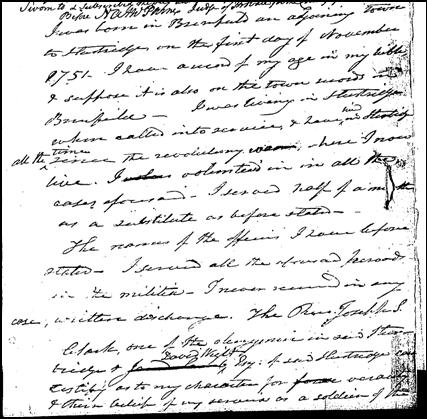 Sworn to & subscribed
Before Nath
I was born in Brimfield an adjoining town
to Sturbridge on the first day of November
1751. I have a record of my age in my bible
& suppose it is also on the town record in
Brimfield — I was living in Sturbridge
when called into service, & have lived in Sturbridge
all the time
since the revolutionary war, where I now
live. I volunteered in in all the
cases aforesaid — I served half of a month
as a substitute as before stated —
The names of the officers I have before
stated — I served all the aforesaid period
in the militia — I never received in any
case, written discharge. The Rev. Joseph S.
Clark, one of the clergymen in said Stur-
bridge & David Wight Esq. of said Sturbridge can
testify as to my character for veracity
& their belief of my services as a soldier of the